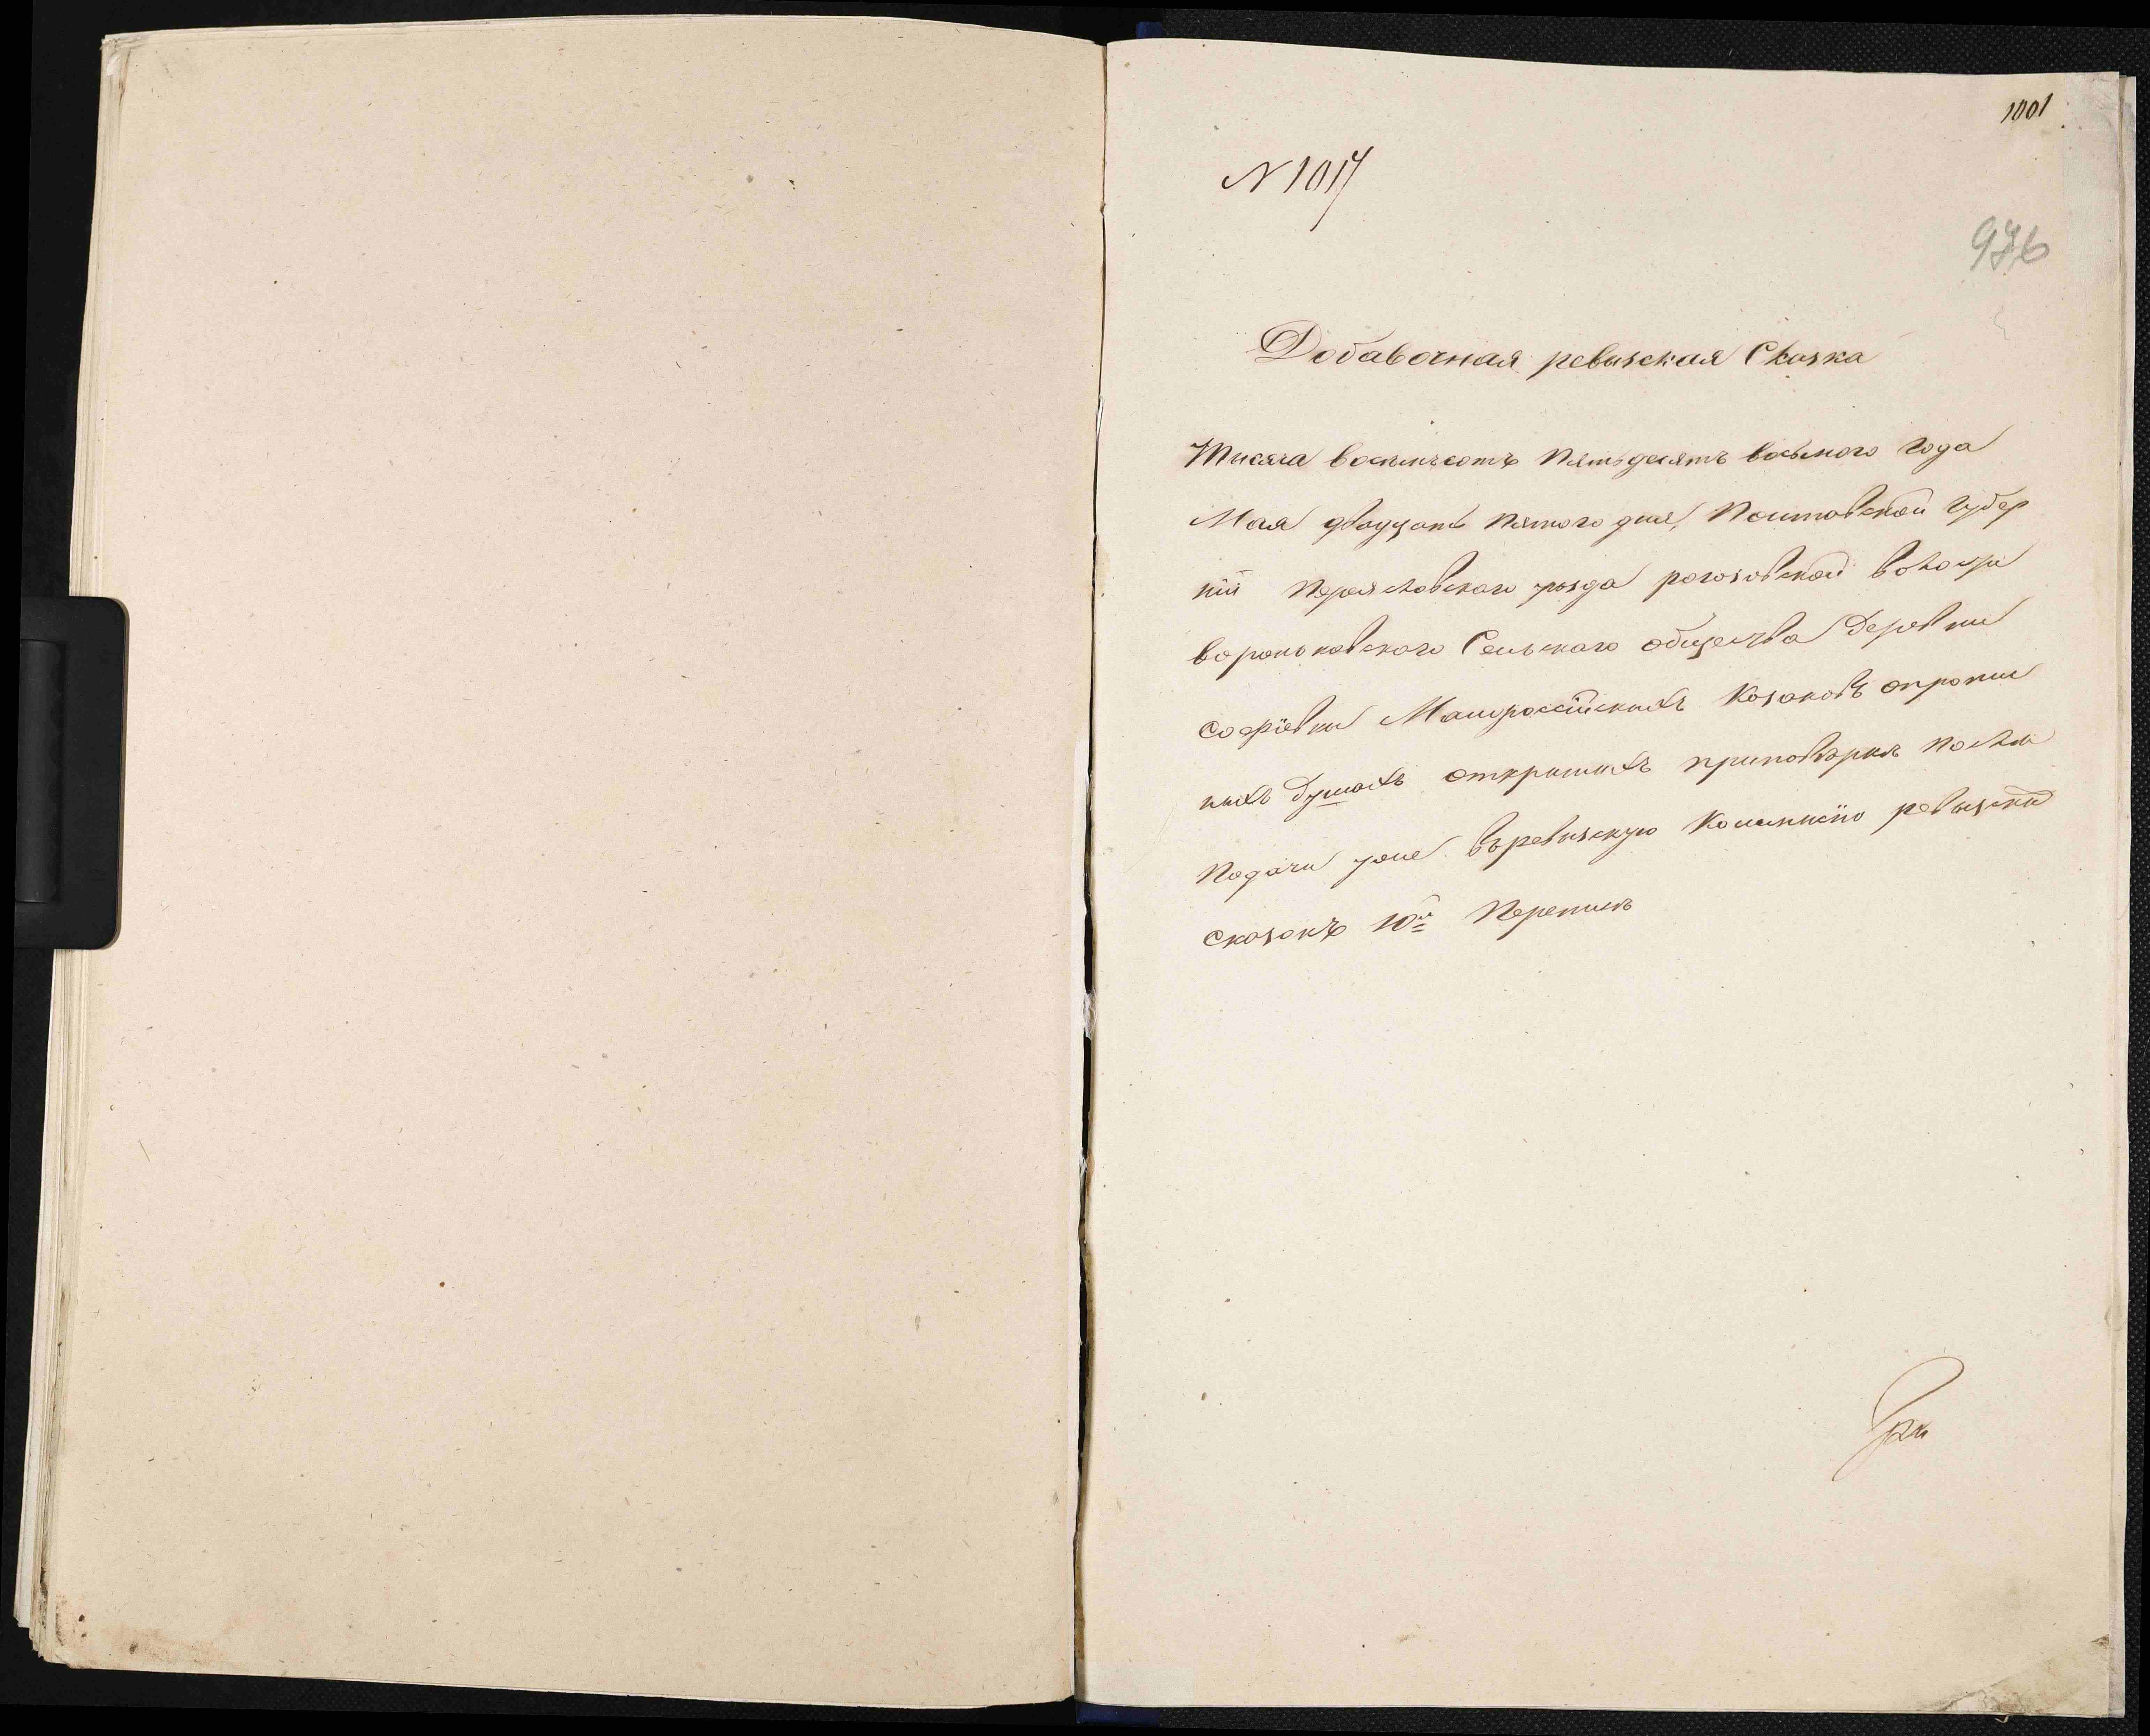 1001
N 1017
976
Добавочная ревизская Сказка
Тысяча восемьсотъ пятьдесятъ восьмого года
Мая двадцать пятого дня, Полтавской губер
нiи Переяславского уезда рогозовской волости
вороньковского Сельского общества Деревни
софiевки Малороссiйскихъ Козаковъ опропи
ныхъ душахъ открытыхъ приповѣрке после
подачи уже въревизскую Коммисiю ревизски
сказокъ 10й Переписи